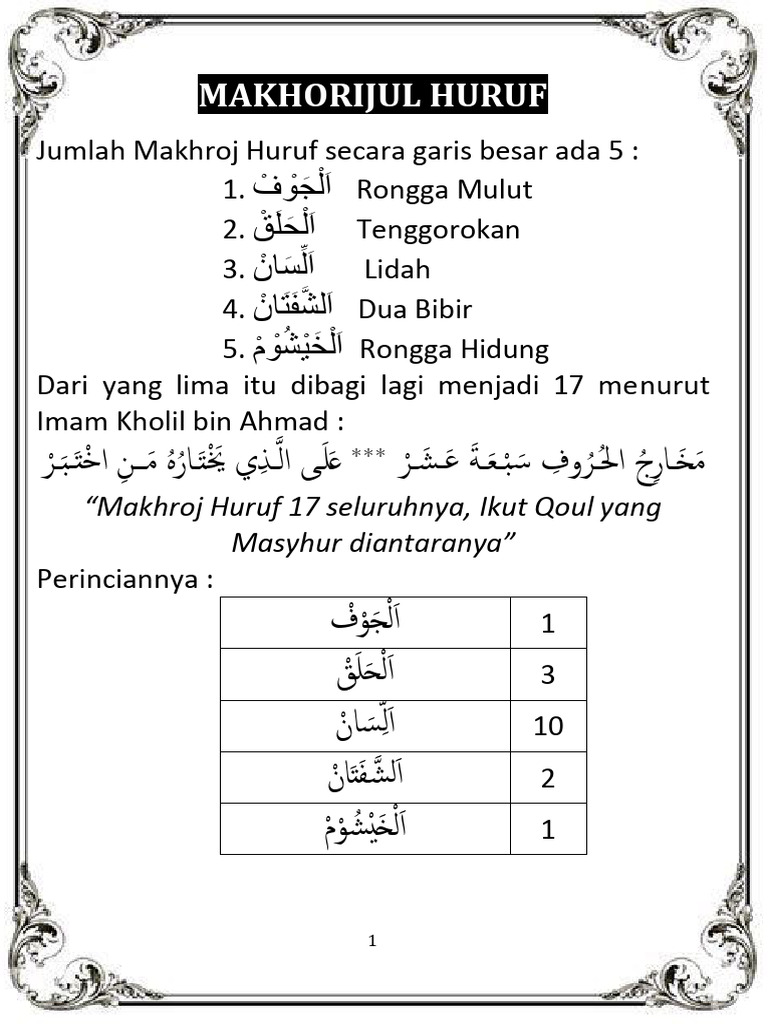 MAKHORIJUL HURUF
Jumlah Makhroj Huruf secara garis besar ada 5 :
1. اَلْجَوْفْ Rongga Mulut
2. اَلْحَلَقْ Tenggorokan
3. اَلِّسَانْ Lidah
4. اَلشَّفَتَانْ Dua Bibir
5. اَلْخَيْشُوْمْ Rongga Hidung
Dari yang lima itu dibagi lagi menjadi 17 menurut
Imam Kholil bin Ahmad :
مَخَارِجُ الْحُرُوفِ سَبْعَةَ عَشَرْ *** عَلَى الَّذِي يَخْتَارُهُ مَنِ اخْتَبَرْ
“Makhroj Huruf 17 seluruhnya, Ikut Qoul yang
Masyhur diantaranya”
Perinciannya :
اَلْجَوْفْ 1
اَلْحَلَقْ 3
اَلِّسَانْ 10
اَلشَّفَتَانْ 2
اَلْخَيْشُوْمْ 1
1